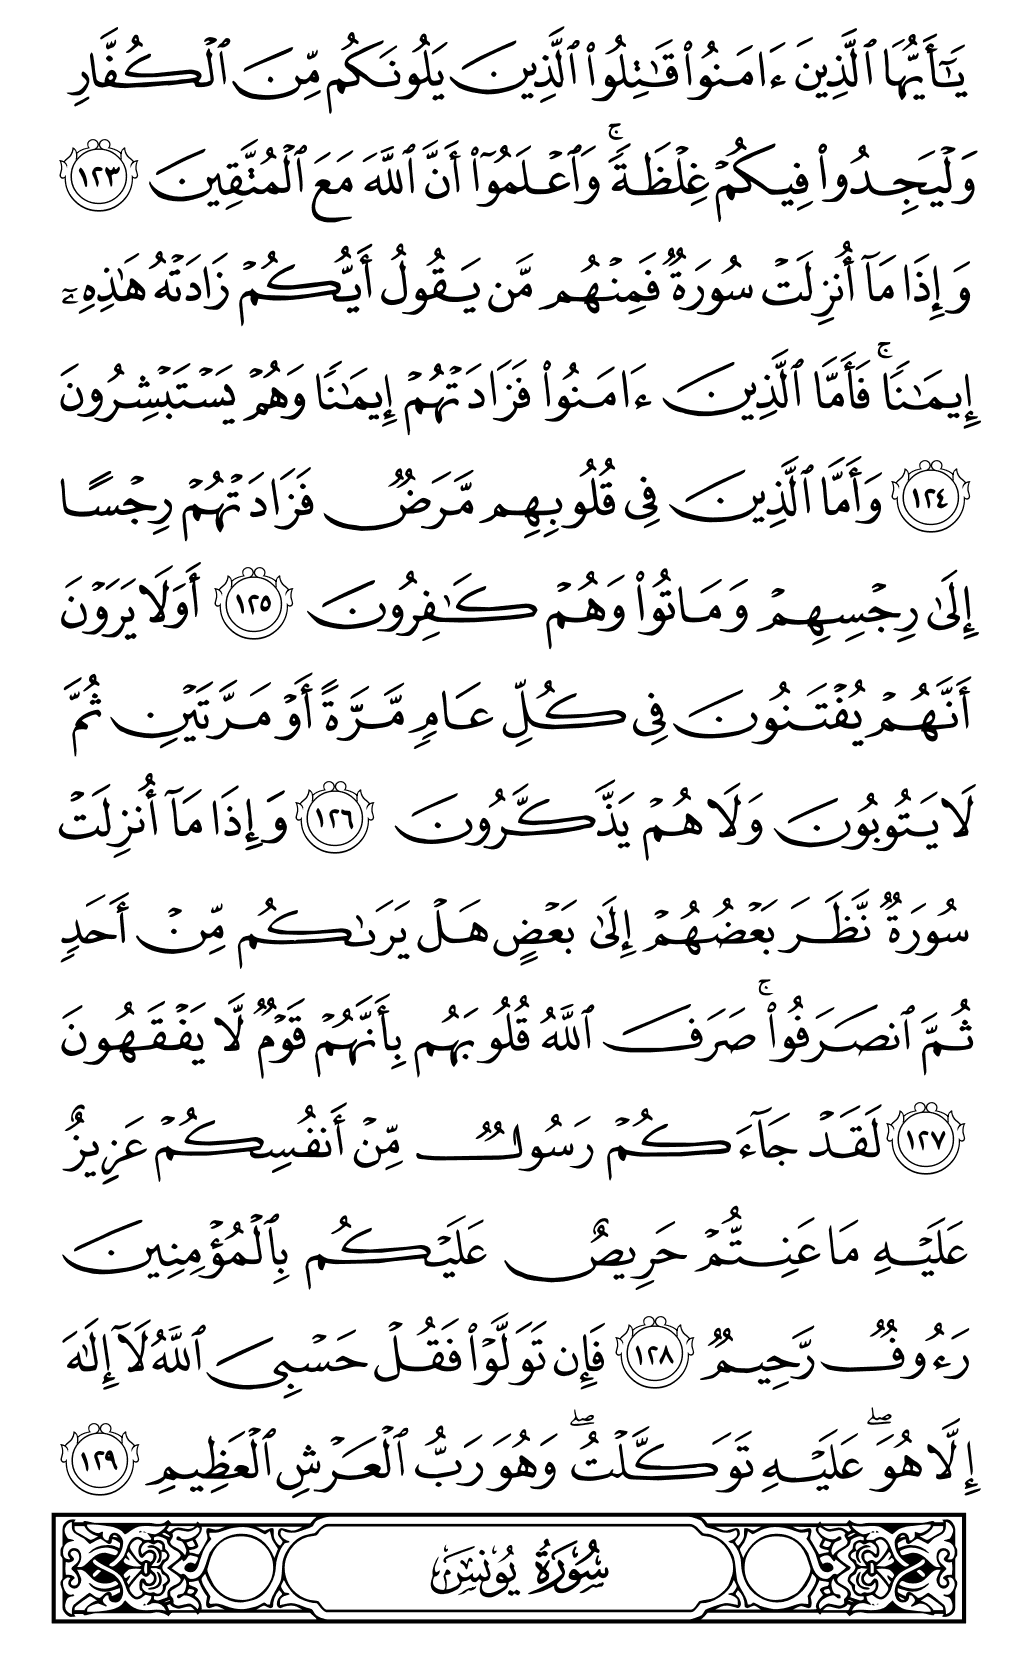 يَـٰٓأَيُّهَا ٱلَّذِينَ ءَامَنُوا۟ قَـٰتِلُوا۟ ٱلَّذِينَ يَلُونَكُم مِّنَ ٱلْكُفَّارِ
وَلْيَجِدُوا۟ فِيكُمْ غِلْظَةً ۚ وَٱعْلَمُوٓا۟ أَنَّ ٱللَّهَ مَعَ ٱلْمُتَّقِينَ ١٢٣
وَإِذَا مَآ أُنزِلَتْ سُورَةٌ فَمِنْهُم مَّن يَقُولُ أَيُّكُمْ زَادَتْهُ هَـٰذِهِۦٓ
إِيمَـٰنًا ۚ فَأَمَّا ٱلَّذِينَ ءَامَنُوا۟ فَزَادَتْهُمْ إِيمَـٰنًا وَهُمْ يَسْتَبْشِرُونَ
١٢٤ وَأَمَّا ٱلَّذِينَ فِى قُلُوبِهِم مَّرَضٌ فَزَادَتْهُمْ رِجْسًا
إِلَىٰ رِجْسِهِمْ وَمَاتُوا۟ وَهُمْ كَـٰفِرُونَ ١٢٥ أَوَلَا يَرَوْنَ
أَنَّهُمْ يُفْتَنُونَ فِى كُلِّ عَامٍ مَّرَّةً أَوْ مَرَّتَيْنِ ثُمَّ
لَا يَتُوبُونَ وَلَا هُمْ يَذَّكَّرُونَ ١٢٦ وَإِذَا مَآ أُنزِلَتْ
سُورَةٌ نَّظَرَ بَعْضُهُمْ إِلَىٰ بَعْضٍ هَلْ يَرَىٰكُم مِّنْ أَحَدٍ
ثُمَّ ٱنصَرَفُوا۟ ۚ صَرَفَ ٱللَّهُ قُلُوبَهُم بِأَنَّهُمْ قَوْمٌ لَّا يَفْقَهُونَ
١٢٧ لَقَدْ جَآءَكُمْ رَسُولٌ مِّنْ أَنفُسِكُمْ عَزِيزٌ
عَلَيْهِ مَا عَنِتُّمْ حَرِيصٌ عَلَيْكُم بِٱلْمُؤْمِنِينَ
رَءُوفٌ رَّحِيمٌ ١٢٨ فَإِن تَوَلَّوْا۟ فَقُلْ حَسْبِىَ ٱللَّهُ لَآ إِلَـٰهَ
إِلَّا هُوَ ۖ عَلَيْهِ تَوَكَّلْتُ ۖ وَهُوَ رَبُّ ٱلْعَرْشِ ٱلْعَظِيمِ ١٢٩
سُورَةُ يُونُسَ